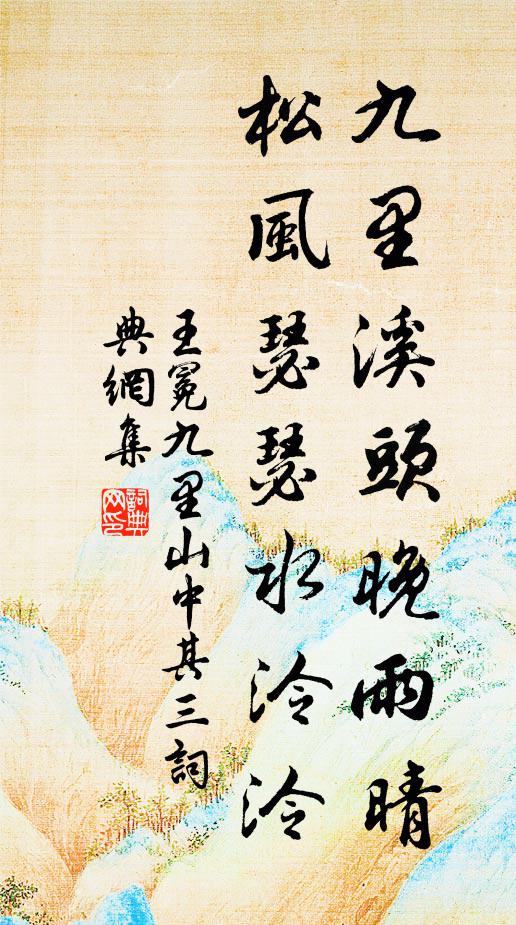 九里溪頭晚雨晴
松風瑟瑟水泠泠
王冕九里山中其三詞
典網集
詞典
网印